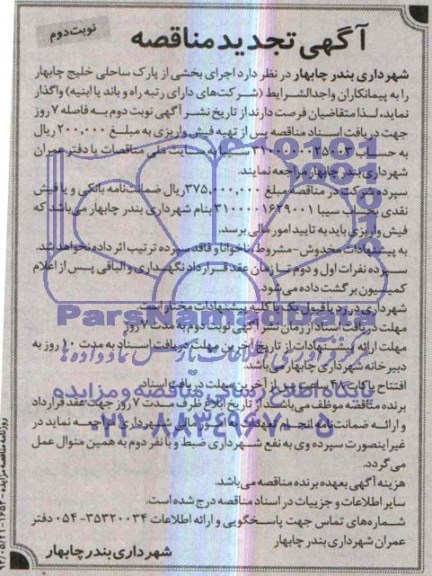 نوبت دوم
آگهی تجدید مناقصه
شهرداری بندر چابهار در نظر دارد اجرای بخشی از پارک ساحلی خلیج چابهار
را به پیمانکاران واجدالشرایط (شرکت‌های دارای رتبه راه و باند یا ابنیه) واگذار
نماید، لذا متقاضیان فرصت دارند از تاریخ نشر آگهی نوبت دوم به فاصله ۷ روز
جهت دریافت اسناد مناقصه پس از تهیه فیش واریزی به مبلغ ۲۰۰,۰۰۰ ریال
به حساب سیبا به سایت ملی مناقصات یا دفتر عمران
شهرداری بندر چابهار مراجعه نمایند.
سپرده شرکت در مناقصه مبلغ ۳۷۵,۰۰۰,۰۰۰ ریال ضمانت‌نامه بانکی و یا فیش
نقدی بحساب سیبا ۳۱۰۰۰۰۱۶۲۹۰۰۱ بنام شهرداری بندر چابهار می‌باشد که
فیش واریزی باید به تایید امور مالی برسد.
به پیشنهادات مخدوش-مشروط، ناخوانا و فاقد سپرده ترتیب اثر داده نخواهد شد.
سپرده نفرات اول و دوم تا زمان عقد قرارداد نگهداری و الباقی پس از اعلام
کمیسیون برگشت داده می‌شود.
شهرداری در رد یا قبول یک یا کلیه پیشنهادات مختار است.
مهلت دریافت اسناد از زمان نشر آگهی نوبت دوم به مدت ۷ روز
مهلت ارائه پیشنهادات از تاریخ آخرین مهلت دریافت اسناد به مدت ۱۰ روز به
دبیرخانه شهرداری چابهار می‌باشد.
افتتاح پاکات ۴۸ ساعت بعد از آخرین مهلت دریافت اسناد
برنده مناقصه موظف می‌باشد از تاریخ ابلاغ ظرف مدت ۷ روز جهت عقد قرارداد
و ارائه ضمانت‌نامه انجام تعهدات به امور مالی شهرداری مراجعه نماید در
غیر اینصورت سپرده وی به نفع شهرداری ضبط و با نفر دوم به همین منوال عمل
می‌گردد.
هزینه آگهی بعهده برنده مناقصه می‌باشد.
سایر اطلاعات و جزییات در اسناد مناقصه درج شده است.
شماره‌های تماس جهت پاسخگویی و ارائه اطلاعات ۳۵۳۲۰۰۳۴-۰۵۴ دفتر
عمران شهرداری بندر چابهار
شهرداری بندر چابهار
ParsNamadData
مرکز فرآوری اطلاعات پارس نماد داده‌ها
پایگاه اطلاع رسانی مناقصه و مزایده
۰۲۱-۸۸۳۴۹۶۷۰-۵
روزنامه مناقصه مزایده-۱۶۵۲-۹۴/۰۵/۲۱